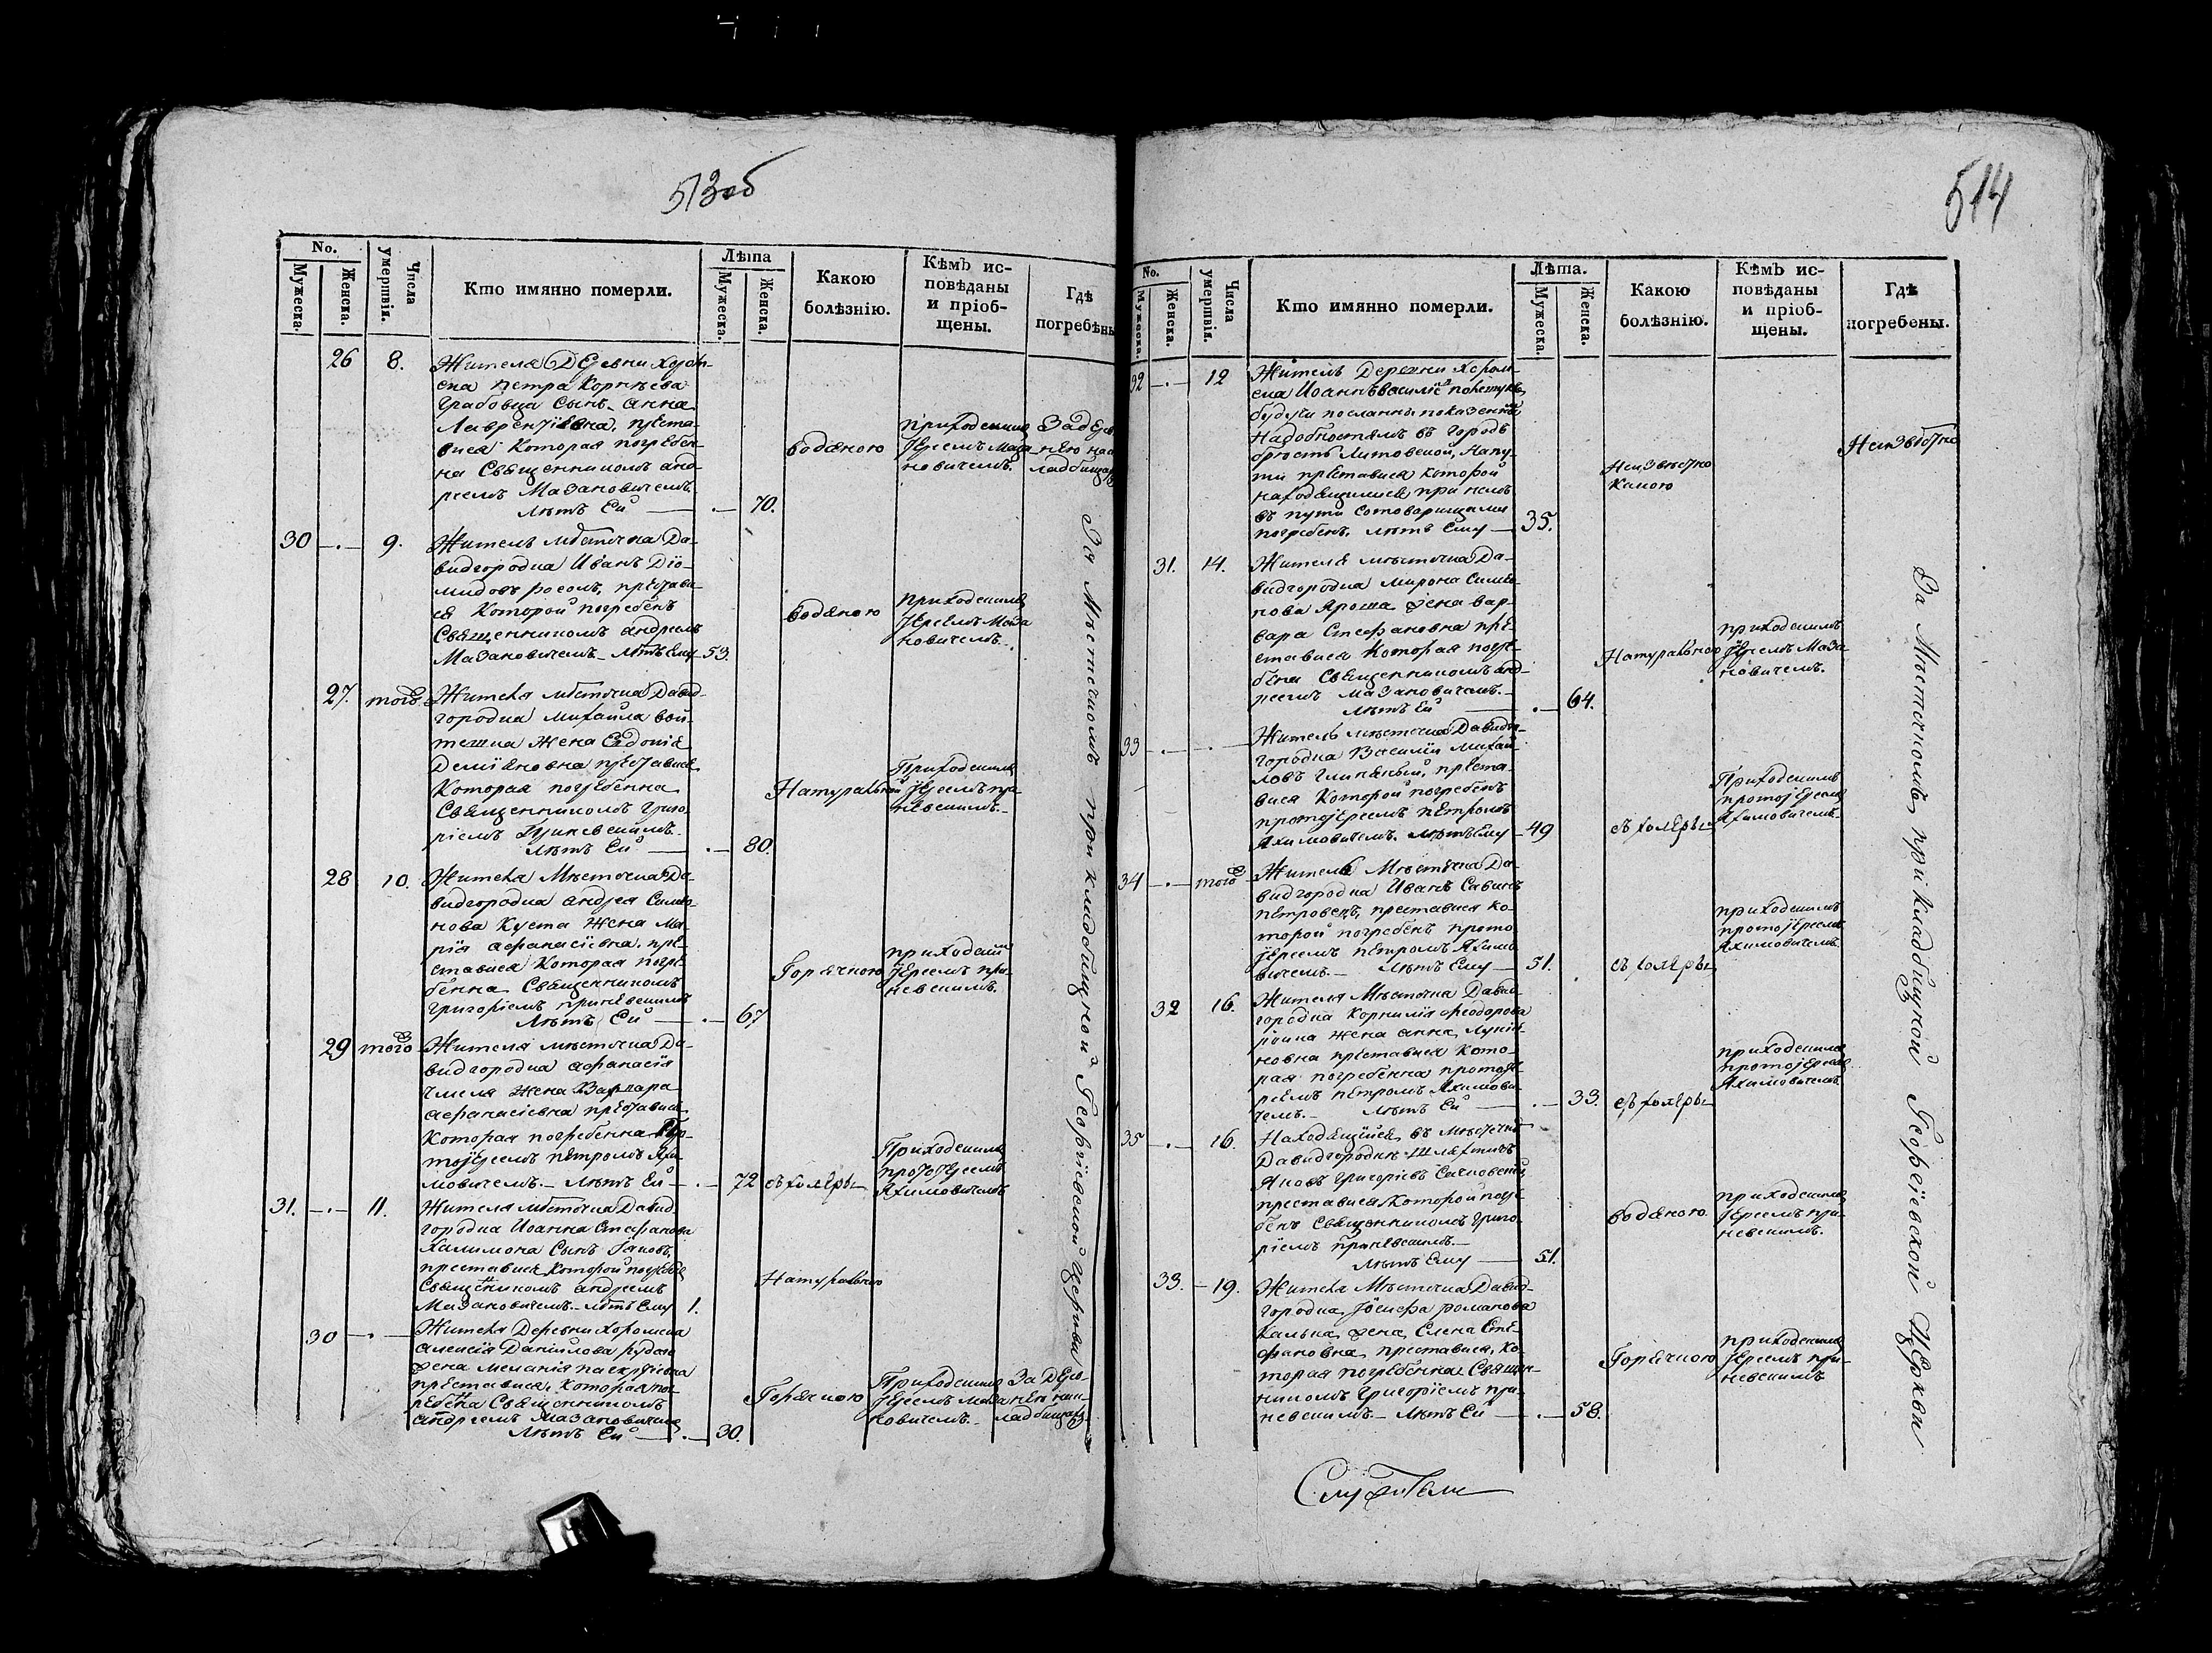 513об
No.
Мужеска.
Женска.
Числа умертвія.
Кто имянно померли.
Лѣта
Мужеска.
Женска.
Какою
болѣзнію.
Кѣмъ ис-
повѣданы
и пріоб-
щены.
Гдѣ
погребены
26 8. Жителя Деревни
Петра Корнѣева
Грабовца Сынъ Анна
Лаврентіевна, преста-
вися Которая погребен-
на Священникомъ анд-
реемъ Мазановичемъ.
Лѣтъ Ей — . — 70.
водяною
приходскимъ
Іереемъ Маза
новичемъ.
За дерев
нею на
кладбищах
30 — . — 9. Житель мѣстечка Да-
видгородка Иванъ Діо-
мидовъ росомъ, престави-
ся Которой погребенъ
Священникомъ андреемъ
Мазановичемъ — Лѣтъ Ему — 53.
водяною
приходскимъ
Іереемъ Маза
новичемъ.
27. того Жителя мѣстечка Давид-
городка Михайла вой-
тешка Жена Евдокія
Деміяновна преставися
Которая погребенна
Священникомъ Григо-
ріемъ
Лѣтъ Ей — . — 80.
Натуральной
Приходскимъ
Іереемъ при-
невскимъ.
28 10. Жителя Мѣстечка Да-
видгородка андрея Симо-
нова Куста Жена Ма-
рія афанасіевна, пре-
ставися Которая погре-
бенна Священникомъ
Григоріемъ приневскимъ
Лѣтъ Ей — . — 67
Горячкою
приходским
Іереемъ при-
невскимъ.
29 того Жителя мѣстечка Да-
видгородка афанасія
Жена Варвара
афанасіевна преставися
Которая погребенна Про-
тоіереемъ петромъ Яхи-
мовичемъ. — Лѣтъ Ей — . — 72
съ холеры
Приходскимъ
протоіереемъ
Яхимовичемъ
31. — . — 11. Жителя мѣстечка Давид-
городка Иоанна Стефанова
Халимона Сынъ Іаковъ,
преставися Которой погребен
Священникомъ андреемъ
Мазановичемъ. — лѣтъ Ему 1.
Натуральною
30 — . — Жителя Деревни Хоромска
алексія Даніилова рудаго
жена Меланія
преставися, Которая пог-
ребена Священникомъ
андреемъ Мазановичемъ
Лѣтъ Ей — . — 30.
Горячкою
Приходскимъ
Іереемъ Маза
новичемъ.
За дерев-
нею на к-
ладбищах
За Мѣстечкомъ при кладбищной Георгіевской церкви
514
No.
Мужеска.
Женска.
Числа умертвія.
Кто имянно померли.
Лѣта.
Мужеска.
Женска.
Какою
болѣзнію.
Кѣмъ ис-
повѣданы
и пріоб-
щены.
Гдѣ
погребены.
32 — . — 12 Житель Деревни Хором-
ска Иоаннъ
будучи посланны по казеннымъ
Надобностямъ въ городъ
брестъ Литовской, На пу-
ти преставися которой
находящимися при немъ
въ пути сотоварищами
погребенъ, лѣтъ Ему — 35.
Неизвѣстно
Какою
Неизвѣстно
31. 14. Жителя мѣстечка Да-
видгородка Мирона Симо-
нова Яроша жена вар-
вара Стефановна пре-
ставися Которая погре-
бена Священникомъ анд-
реемъ Мазановичемъ. —
Лѣтъ Ей — . — 64.
Натуральною
приходскимъ
Іереемъ Маза-
новичемъ.
33 — . — . — Житель мѣстечка Давид-
городка Василій Михай-
ловъ Глиняный, преста-
вися Которой погребенъ
протоіереемъ петромъ
Яхимовичемъ. Лѣтъ Ему — 49
съ холеры
Приходскимъ
протоіереемъ
Яхимовичемъ.
34 — . — того Житель Мѣстечка Да-
видгородка Иванъ Савинъ
петровецъ, преставися ко-
торой погребенъ прото
іереемъ петромъ Яхимо-
вичемъ. — Лѣтъ Ему — 51.
съ холеры
приходскимъ
протоіереемъ
Яхимовичемъ.
32 16. Жителя Мѣстечка Давид-
городка Корнилія Феодорова
жена анна Лукія-
новна преставися Кото-
рая погребенна протоіе-
реемъ петромъ Яхимови-
чемъ. — Лѣтъ Ей — . — 33.
съ холеры
приходскимъ
протоіереемъ
Яхимовичемъ
35 — . — 16. Находящійся въ Мѣстечкѣ
Давидгородкѣ шляхтичъ
Яковъ Григоріевъ Сачковскій,
преставися Которой погре-
бенъ Священникомъ Григо-
ріемъ приневскимъ. —
Лѣтъ Ему — 51.
водяною.
приходскимъ
Іереемъ при-
невскимъ.
33. — 19. Жителя Мѣстечка Давид-
городка, Іосифа романова
жена Елена Сте-
фановна преставися, Ко-
торая погребенна Священ-
никомъ Григоріемъ при-
невскимъ — Лѣтъ Ей — . — 58.
Горячкою
приходскимъ
Іереемъ при-
невскимъ
За Мѣстечкомъ при кладбищной Георгіевской Церкви
Служители